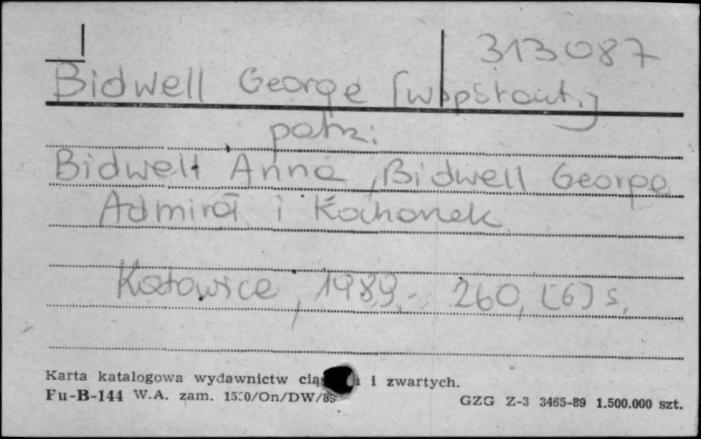 313087
Bidwell George [współaut.]
patrz:
Bidwell Anna, Bidwell George
Admirał i Kochanek
Katowice, 1989.- 260, [6] s.
Karta katalogowa wydawnictw i zwartych.
Fu-B-144 W.A. zam. GZG Z-3 3465-89 1.500.000 szt.